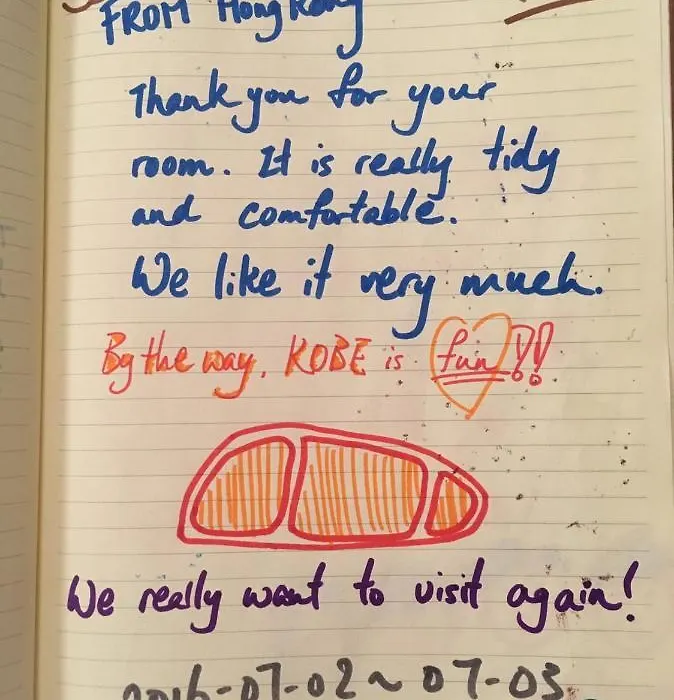 FROM Hong Kong
Thank you for your
room. It is really tidy
and comfortable.
We like it very much.
By the way, KOBE is fun!!
We really want to visit again!
2016-07-02~07-03